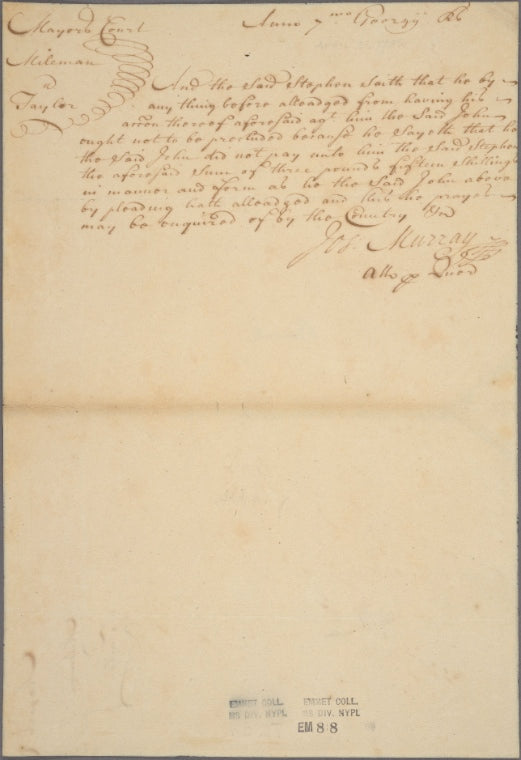 Mayors Court
Anno 7mo Georgij Rs
Mileman
v
Taylor
And the Said Stephen Saith that he by
any thing before alleadged from having his
accon thereof aforesaid agt. him the Said John
ought not to be precluded because he Sayeth that he
the Said John did not pay unto him the Said Stephen
the aforesaid Sum of three pounds fifteen Shillings
in manner and form as he the Said John above
by pleading hath alleadged and this he prayes
may be enquired of by the Country &
Jos. Murray
Atto p Quer
EMMET COLL.
MS DIV. NYPL
EMMET COLL.
MS DIV. NYPL
EM 88